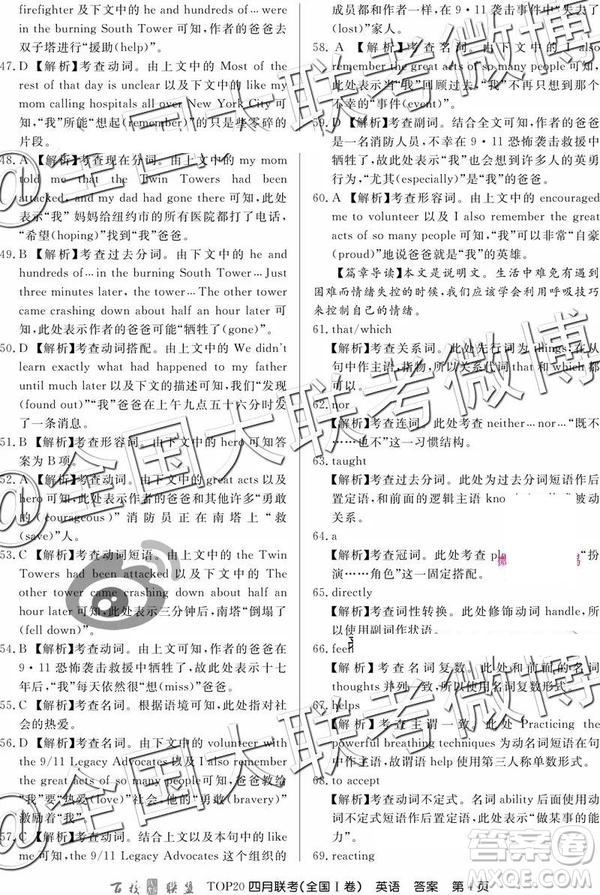 firefighter 及下文中的 he and hundreds of… were
in the burning South Tower 可知，作者的爸爸去
双子塔进行“援助(help)”。
47. D 【解析】考查动词。由上文中的 Most of the
rest of that day is unclear 以及下文中的 like my
mom calling hospitals all over New York City 可
知，“我”所能“想起(remember)”的只是些零碎的
片段。
48. A 【解析】考查现在分词。由上文中的 my mom
told me that the Twin Towers had been
attacked, and my dad had gone there 可知，此
处表示“我”妈妈给纽约市的所有医院都打了电话，
“希望(hoping)”找到“我”爸爸。
49. B 【解析】考查过去分词。由下文中的 he and
hundreds of… in the burning South Tower… Just
three minutes later, the tower… The other tower
came crashing down about half an hour later 可
知，此处表示作者的爸爸可能“牺牲了(gone)”。
50. D 【解析】考查动词搭配。由上文中的 We didn't
learn exactly what had happened to my father
until much later 以及下文中的可知，我们“发现
(found out)”“我”爸爸在上午九点五十六分时发
了一条消息。
51. B 【解析】考查形容词。由下文中的 hero 可知答
案为 B 项。
52. A 【解析】考查动词。由上文中的 great acts 以及
hero 可知，此处表示作者的爸爸和其他许多“勇敢
的(courageous)”消防员正在南塔上“救
(save)”人。
53. C 【解析】考查动词短语。由上文中的 the Twin
Towers had been attacked 以及下文中的 The
other tower came crashing down about half an
hour later 可知，此处表示三分钟后，南塔“倒塌了
(fell down)”。
54. A 【解析】考查动词。由上文可知，作者的爸爸在
9·11 恐怖袭击救援中牺牲了，故此处表示十七
年后，“我”仍然“想(miss)”爸爸。
55. C 【解析】考查名词。根据语境可知，此处表示对
社会的热爱。
56. D 【解析】考查名词。由下文中的 volunteer with
the 9/11 Legacy Advocates 以及 I also remember
the great acts of so many people 可知，爸爸教给
“我”要“热爱(love)”和他的“勇敢(bravery)”
激励着“我”。
57. C 【解析】考查动词。由上文以及本句中的 like
me, the 9/11 Legacy Advocates 可知，其他组织
成员都和作者一样，在 9·11 事件中“失去了
(lost)”
58. A 【解析】考查名词。由下文中的 I also
remember the great acts of so many people 可知，
此处表示当“我”回看过去，“我”不再只想到那天
不幸的“事件(event)”。
59. D 【解析】考查副词。结合全文可知，作者的爸爸
是一名消防人员，不幸在 9·11 恐怖袭击救援中
牺牲了，故“我”也会想到许多人的英勇
行为，“尤其(especially)”是“我”的爸爸。
60. A 【解析】考查形容词。由上文中的 encouraged
me to volunteer 以及 I also remember the great
acts of so many people 可知，“我”可以非常“自豪
(proud)”地说爸爸就是我的英雄。
【篇章导读】本文是说明文。生活中难免有遇到
困难而情绪失控的时候，我们应该学会利用呼吸技巧
来控制自己的情绪。
61. that/which
【解析】考查关系词。此处先行词为 things，在从
句中作主语，指物，所以关系代词 that 和 which 都
可以。
62. nor
【解析】考查连词。此处考查 neither… nor…“既不
……也不……”这一习惯结构。
63. taught
【解析】考查过去分词。此处为过去分词短语作后
置定语，和前面的逻辑主语 kno
被动关系。
64. a
【解析】考查冠词。此处考查 pla “扮
演……角色”这一固定搭配。
65. directly
【解析】考查词性转换。此处修饰动词 handle，所
以使用副词作状语。
66. feel
【解析】考查名词复数。此处和前面的名词
thoughts 并列一致，所以使用名词复数形式。
67. helps
【解析】考查主谓一致。此处 Practicing the
powerful breathing techniques 为动名词短语在句
中作主语，故谓语 help 使用第三人称单数形式。
68. to accept
【解析】考查动词不定式。名词 ability 后面使用
动词不定式短语作后置定语，表示“做某事的能
力”。
69. reacting
百校联盟 TOP20 四月联考(全国 I 卷) 英语 答案 第 4 页
@全国大联考微博
@全国大联考微博
@全国大联考微博